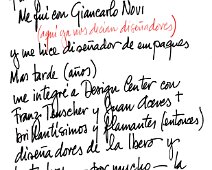 Me fui con Giancarlo Novi
(aquí ya nos decían diseñadores)
y me hice diseñador de empaques
Mas tarde (años)
me integré a Design Center con
Franz. Teuscher y Juan Gomez +
brillantísimos y flamantes (entonces)
diseñadores de la Ibero — y
por mucho — la